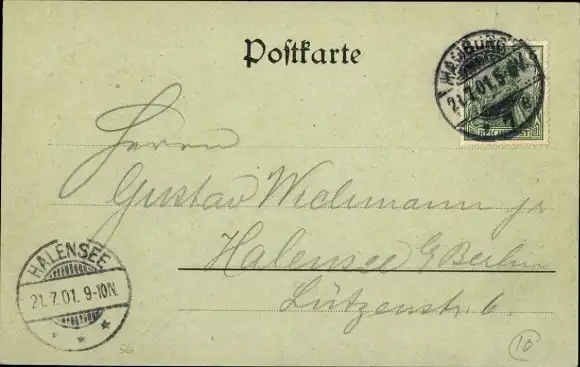 Postkarte
HAMBURG
21.7.01.
* 7 e
REICHSPOST
Herrn
Gustav Wichmann jr
Halensee b/Berlin
Lützenstr. 6.
HALENSEE
21.7.01. 9-10N.
* * *
10
56